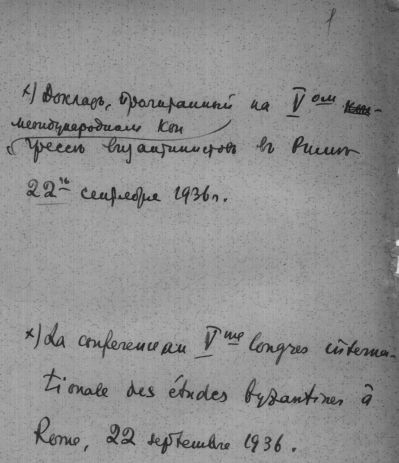 1
x) Докладъ, прочитанный на V омъ
международномъ Кон
грессѣ византинистовъ въ Римѣ
22го сентября 1936 г.
x) La conference au V me Congres interna-
tionale des études byzantines à
Rome, 22 septembre 1936.